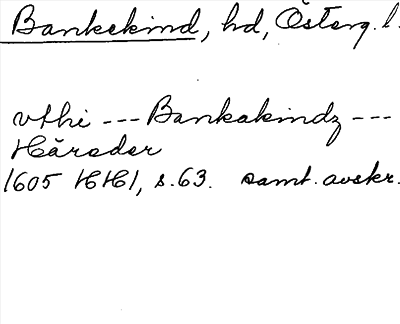 Bankekind, hd, Österg. l.
vthi --- Bankakindz ---
Härader
1605 HH1, s.63. samt. avskr.